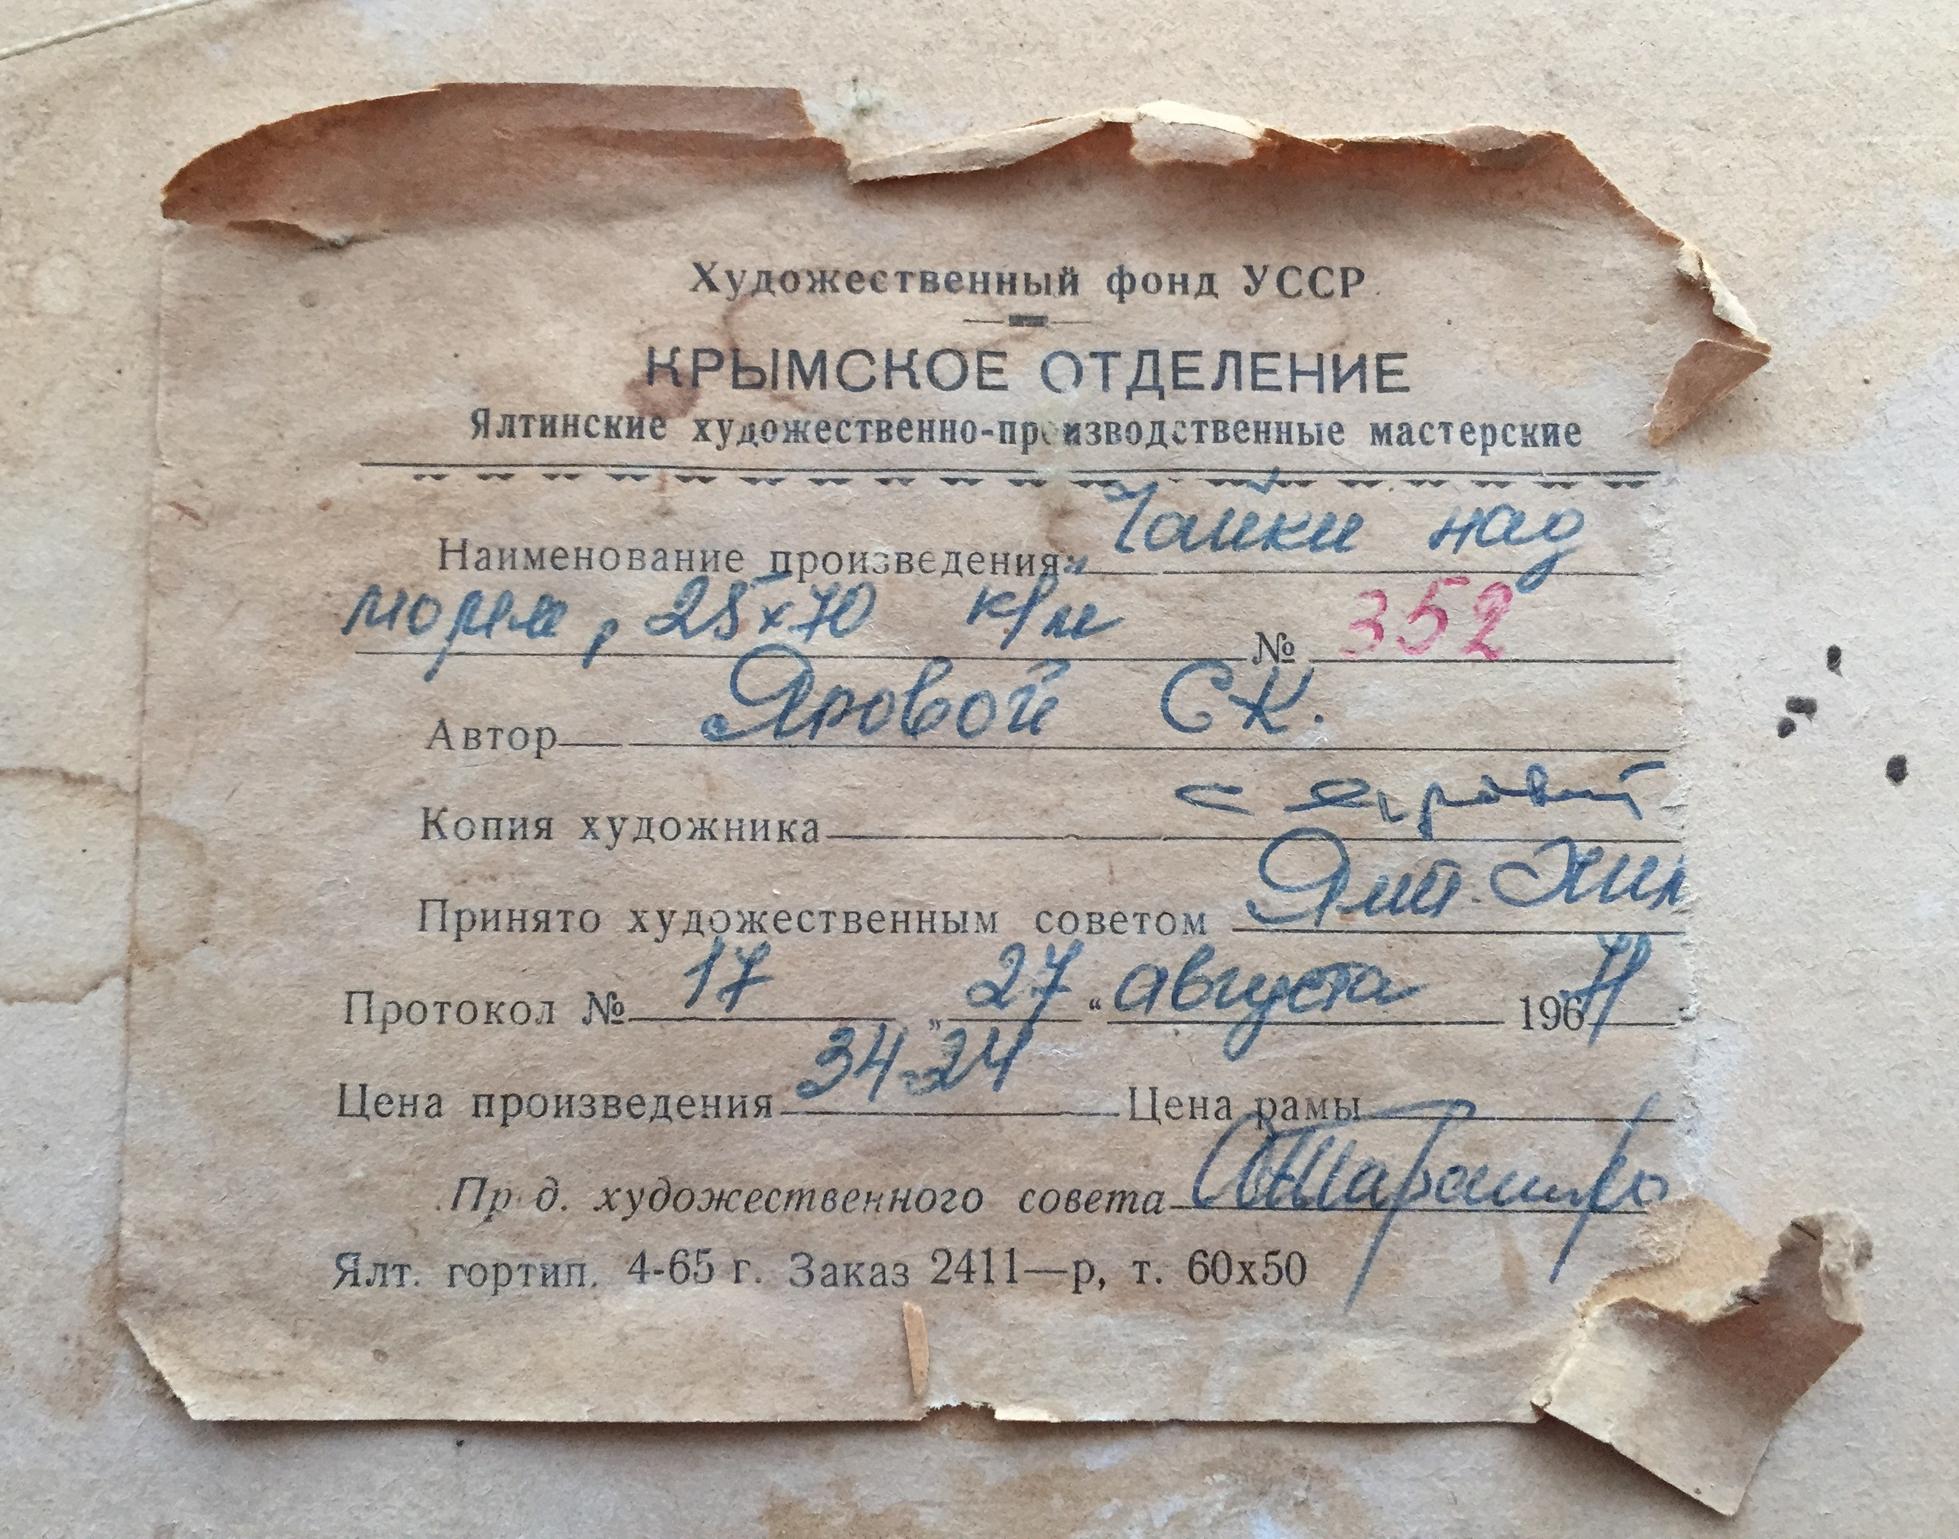 Художественный фонд УССР
КРЫМСКОЕ ОТДЕЛЕНИЕ
Ялтинские художественно-производственные мастерские
Наименование произведения „Чайки над
морем, 25х70 к/м № 352
Автор Яровой С К.
Копия художника с Яровой
Принято художественным советом Ялт.
Протокол № 17 „27“ августа 1971
Цена произведения 34-24 Цена рамы
Пред. художественного совета
Ялт. гортип. 4-65 г. Заказ 2411—р, т. 60х50